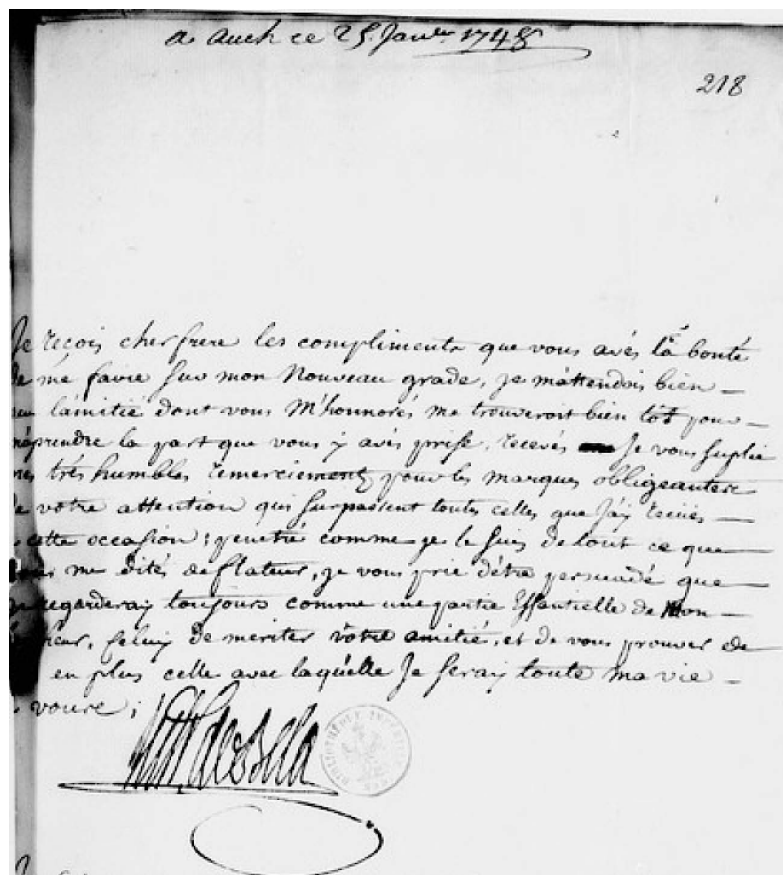 a auch ce 25. Janv.er 1748
218
Je reçois cher frere les compliments que vous avés la bonté
de me faire sur mon Nouveau grade, je m'attendois bien
que l'amitié dont vous M'honnorés me trouveroit bien tôt pour
m'aprendre la part que vous y avés prise, recevés Je vous suplie
mes trés humbles remerciements pour les marques obligeantes
de votre attention qui surpassent toutes celles que J'ay reçues
cette occasion; penetré comme je le suis de tout ce que
vous me dités de flateur, je vous prie d'étre persuadé que
je regarderay toujours comme une partie Essantielle de Mon
heur, seluy de meriter votre amitié, et de vous prouver de
en plus celle avec laquelle Je seray toute ma vie
voure;
BIBLIOTHÈQUE IMPÉRIALE